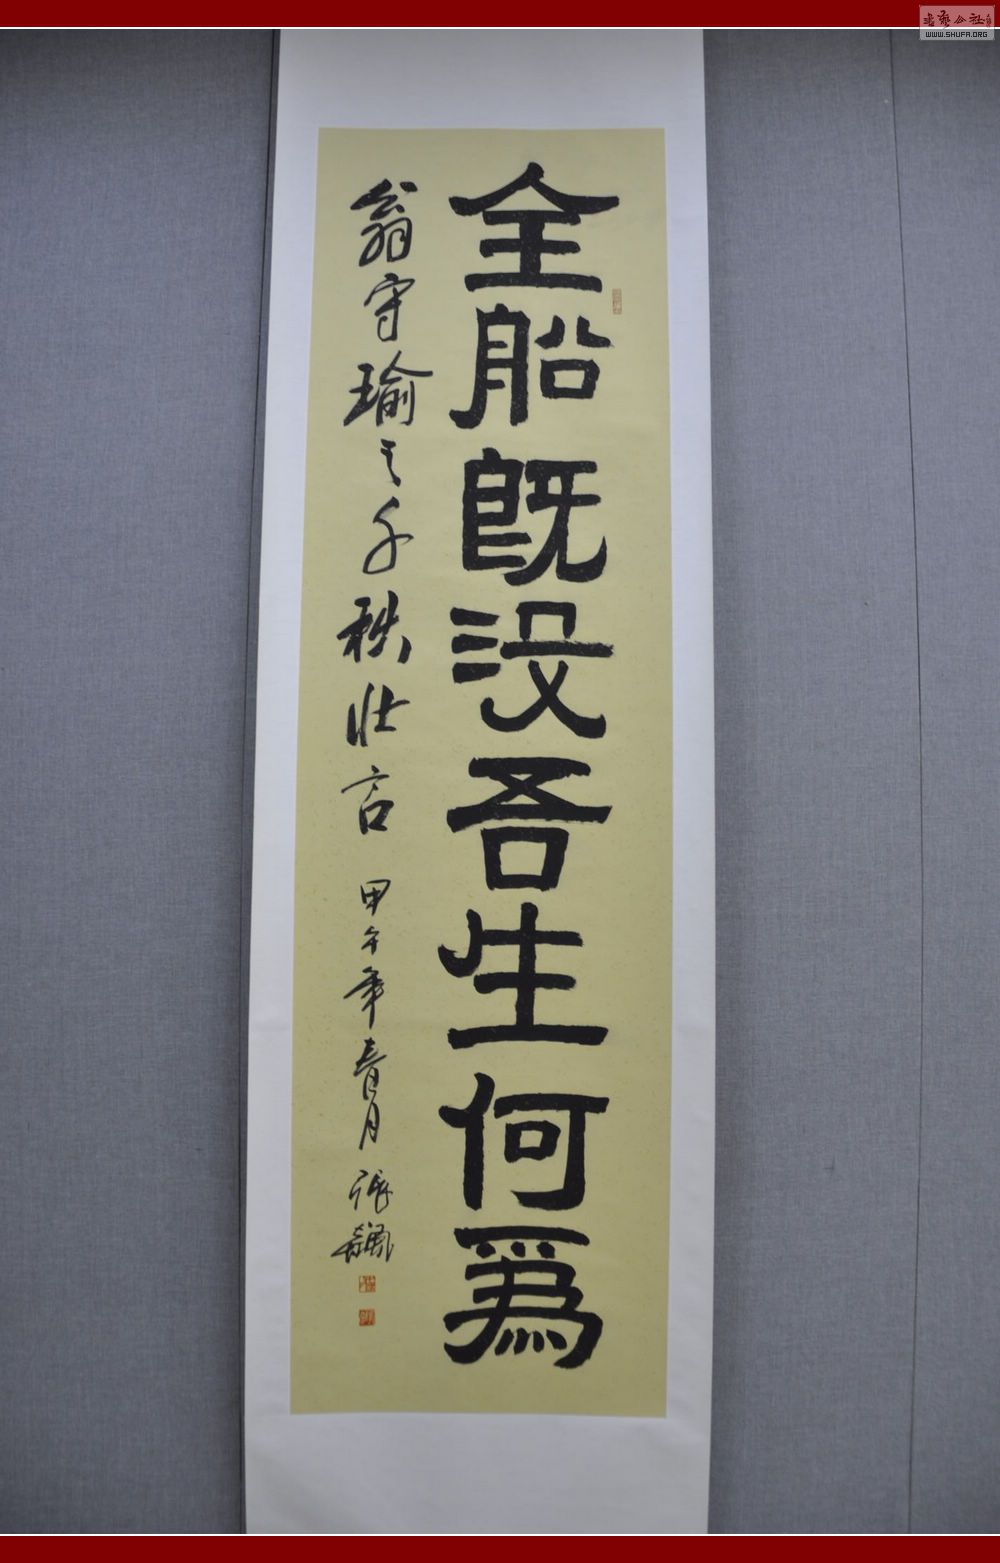 全船既没吾生何為
翁守瑜之千秩壮言 甲午年春月 張飆
书艺公社
WWW.SHUFA.ORG